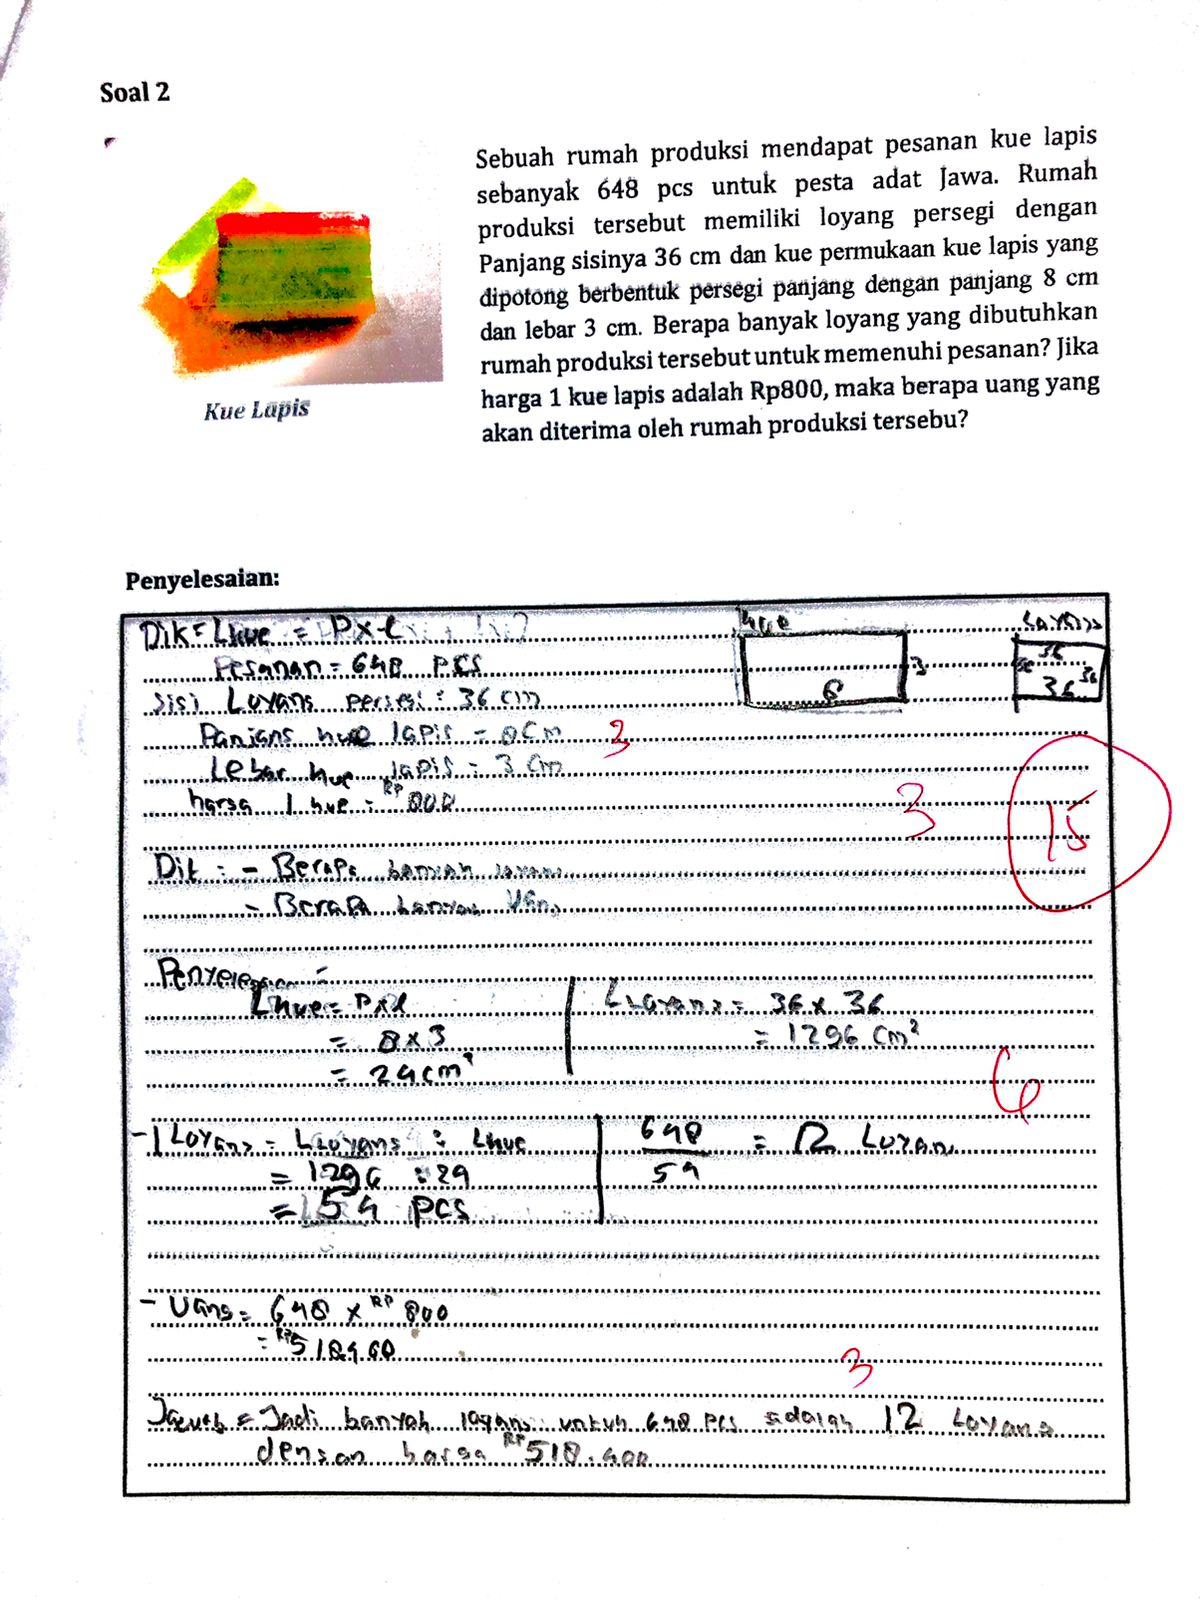 Soal 2
Sebuah rumah produksi mendapat pesanan kue lapis
sebanyak 648 pcs untuk pesta adat Jawa. Rumah
produksi tersebut memiliki loyang persegi dengan
Panjang sisinya 36 cm dan kue permukaan kue lapis yang
dipotong berbentuk persegi panjang dengan panjang 8 cm
dan lebar 3 cm. Berapa banyak loyang yang dibutuhkan
rumah produksi tersebut untuk memenuhi pesanan? Jika
harga 1 kue lapis adalah Rp800, maka berapa uang yang
akan diterima oleh rumah produksi tersebu?
Kue Lapis
Penyelesaian:
Dik = Lkue = P x l
kue
Loyang
3
8
36
36
36
36
Pesanan = 648 PCS
Sisi Loyang persegi : 36 cm
Panjang kue lapis = 8 cm
3
Lebar kue lapis = 3 cm
harga 1 kue = RP 800
3
15
Dit : - Berapa banyak loyang
- Berapa banyak Uang
Penyelesaian =
Lkue = P x l
= 8 x 3
= 24 cm²
L Loyang = 36 x 36
= 1296 cm²
6
- 1 Loyang = L Loyang : Lkue
= 1296 : 24
= 54 PCS
648
54
= 12 Loyan
- Uang = 648 x RP 800
= RP 518400
3
Jawab = Jadi banyak loyang untuk 648 PCS adalah 12 Loyang
dengan harga RP 518.400